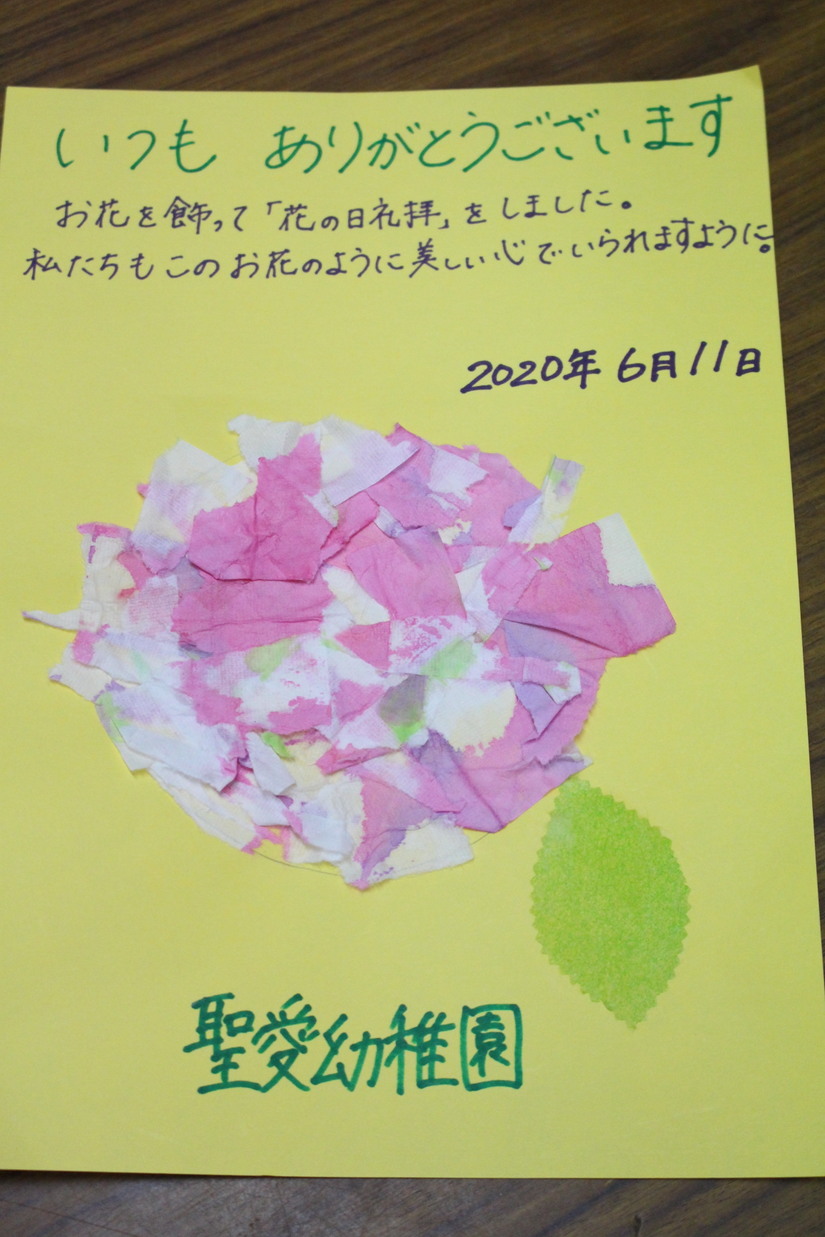 いつも ありがとうございます
お花を飾って「花の日礼拝」をしました。
私たちもこのお花のように美しい心でいられますように。
2020年 6月11日
聖愛幼稚園